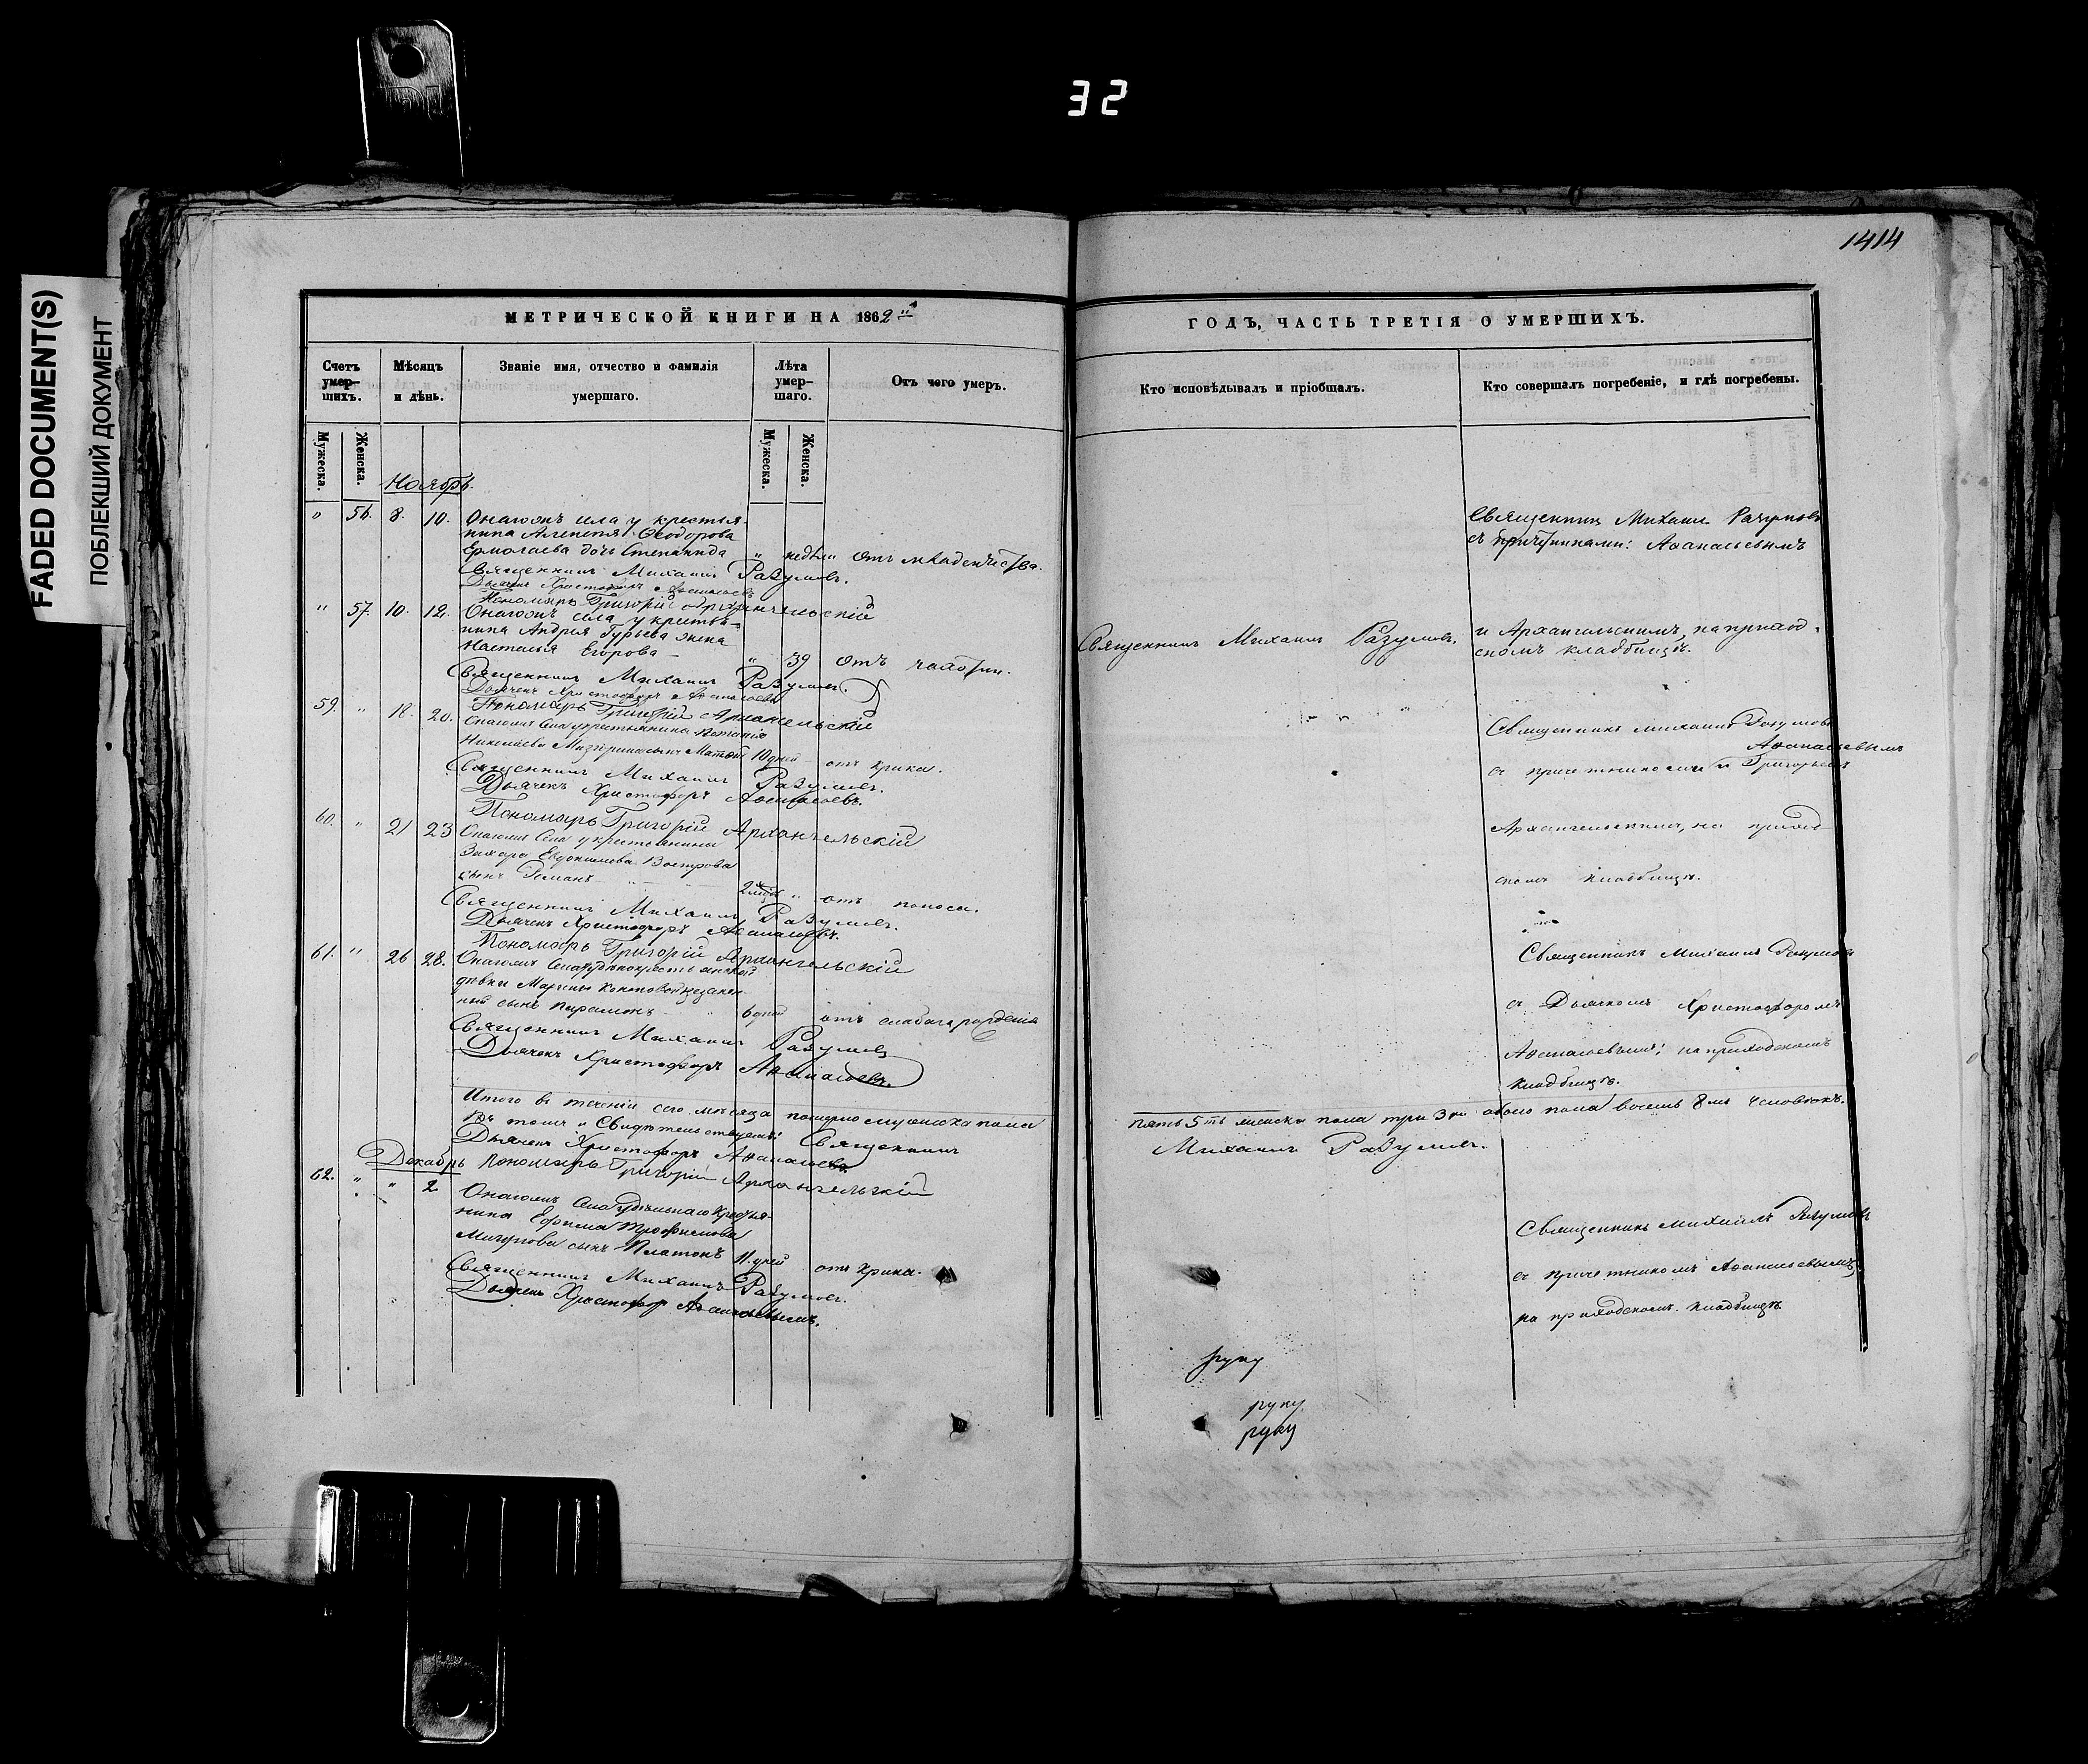 32
1414
FADED DOCUMENT(S)
ПОБЛЕКШИЙ ДОКУМЕНТ
МЕТРИЧЕСКОЙ КНИГИ НА 1862й
Счетъ умер-шихъ.
Мѣсяцъ и дѣнь.
Званіе имя, отчество и фамилія умершаго.
Лѣта умер-шаго.
Отъ чего умеръ.
Мужеска.
Женска.
Мужеска.
Женска.
Ноябрь.
" 56. 8. 10. Онагожъ села у крестья-
нина Ѳеодорова
Ермолаева дочь Степанида " недѣли отъ младенчества.
Священникъ Михаилъ Разумовъ.
Дьячекъ Христофоръ Аѳанасьевъ
Пономарь Григорій Архангельскій
" 57. 10. 12. Онагожъ села у крестья-
нина Андрея Гурьева жена
Наталья Егорова " 39 отъ чахотки.
Священникъ Михаилъ Разумовъ.
Дьячекъ Христофоръ Аѳанасьевъ
Пономарь Григорій Архангельскій
59. " 18. 20. Онагожъ села у крестьянина
Николаева сынъ 10 дней отъ крика.
Священникъ Михаилъ Разумовъ.
Дьячекъ Христофоръ Аѳанасьевъ.
Пономарь Григорій Архангельскій
60. " 21 23 Онагожъ села у крестьянина
Захара Евдокимова Вострова
сынъ Романъ " отъ поноса.
Священникъ Михаилъ Разумовъ.
Дьячекъ Христофоръ Аѳанасьевъ.
Пономарь Григорій Архангельскій
61. " 26 28. Онагожъ села
дѣвки незакон-
ный сынъ Парамонъ 6 дней отъ слабаго рожденія
Священникъ Михаилъ Разумовъ
Дьячекъ Христофоръ Аѳанасьевъ.
Итого въ теченіи сего мѣсяца померло мужеска пола
Въ томъ и свидѣтельствуемъ: Священникъ
Дьячекъ Христофоръ Аѳанасьевъ.
Декабрь Пономарь Григорій Архангельскій
62. " " 2. Онагожъ села крестья-
нина Ефима Трофимова
сынъ Платонъ 11. дней отъ крика.
Священникъ Михаилъ Разумовъ.
Дьячекъ Христофор Аѳанасьевымъ.
ГОДЪ, ЧАСТЬ ТРЕТІЯ О УМЕРШИХЪ.
Кто исповѣдывалъ и пріобщалъ.
Кто совершалъ погребеніе, и гдѣ погребены.
Священникъ Михаилъ Разумовъ
съ причетниками: Аѳанасьевымъ
Священникъ Михаилъ Разумовъ.
и Архангельскимъ, на приход-
скомъ кладбищѣ.
Священникъ Михаилъ Разумовъ
Аѳанасьевымъ
съ причетникомъ и Григорьемъ
Архангельскимъ, на приход-
скомъ кладбищѣ.
Священникъ Михаилъ Разумовъ
съ Дьячкомъ Христофоромъ
Аѳанасьевымъ; на приходскомъ
кладбищѣ.
пять 5ть женска пола три 3ри обоего пола восемь 8мь человѣкъ.
Михаилъ Разумовъ.
Священникъ Михаилъ Разумовъ
съ причетникомъ Аѳанасьевымъ,
на приходскомъ. кладбищѣ
руку
руку
руку